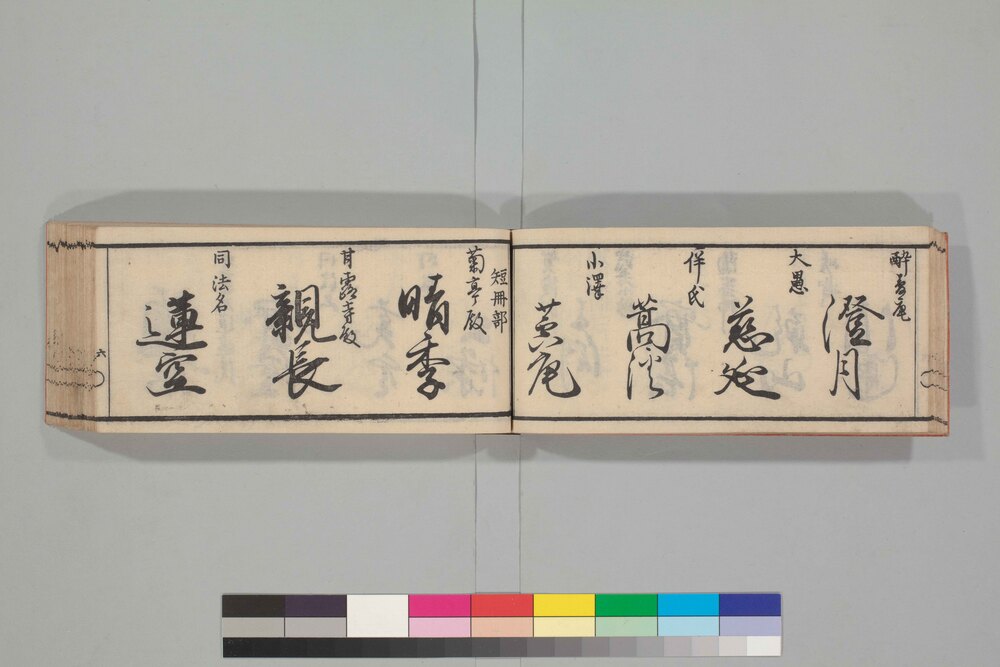 酔夢庵
澄月
大愚
慈延
伴氏
蒿蹊
小澤
芦庵
短冊部
菊亭殿
晴季
甘露寺殿
親長
同法名
蓮空
六